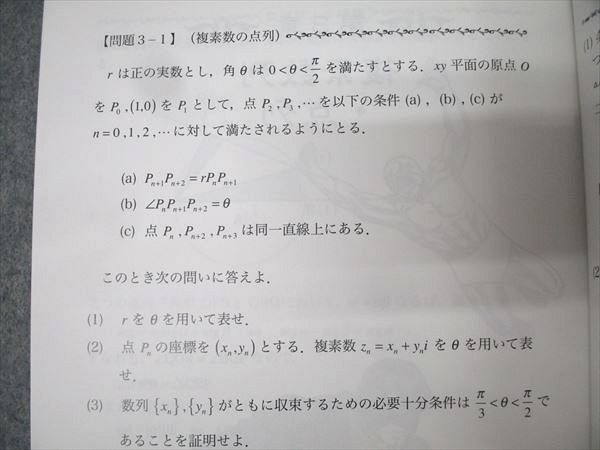 【問題3－1】（複素数の点列）
r は正の実数とし，角 θ は 0<θ<π/2 を満たすとする．xy 平面の原点 O
を P₀，(1,0)を P₁として，点 P₂，P₃，⋯を以下の条件 (a)，(b)，(c) が
n=0,1,2,⋯に対して満たされるようにとる．
(a) Pₙ₊₁Pₙ₊₂=rPₙPₙ₊₁
(b) ∠PₙPₙ₊₁Pₙ₊₂=θ
(c) 点 Pₙ，Pₙ₊₂，Pₙ₊₃は同一直線上にある．
このとき次の問いに答えよ．
(1) r を θ を用いて表せ．
(2) 点 Pₙ の座標を (xₙ,yₙ) とする．複素数 zₙ=xₙ+yₙi を θ を用いて表
せ．
(3) 数列 {xₙ},{yₙ} がともに収束するための必要十分条件は π/3<θ<π/2 で
あることを証明せよ．